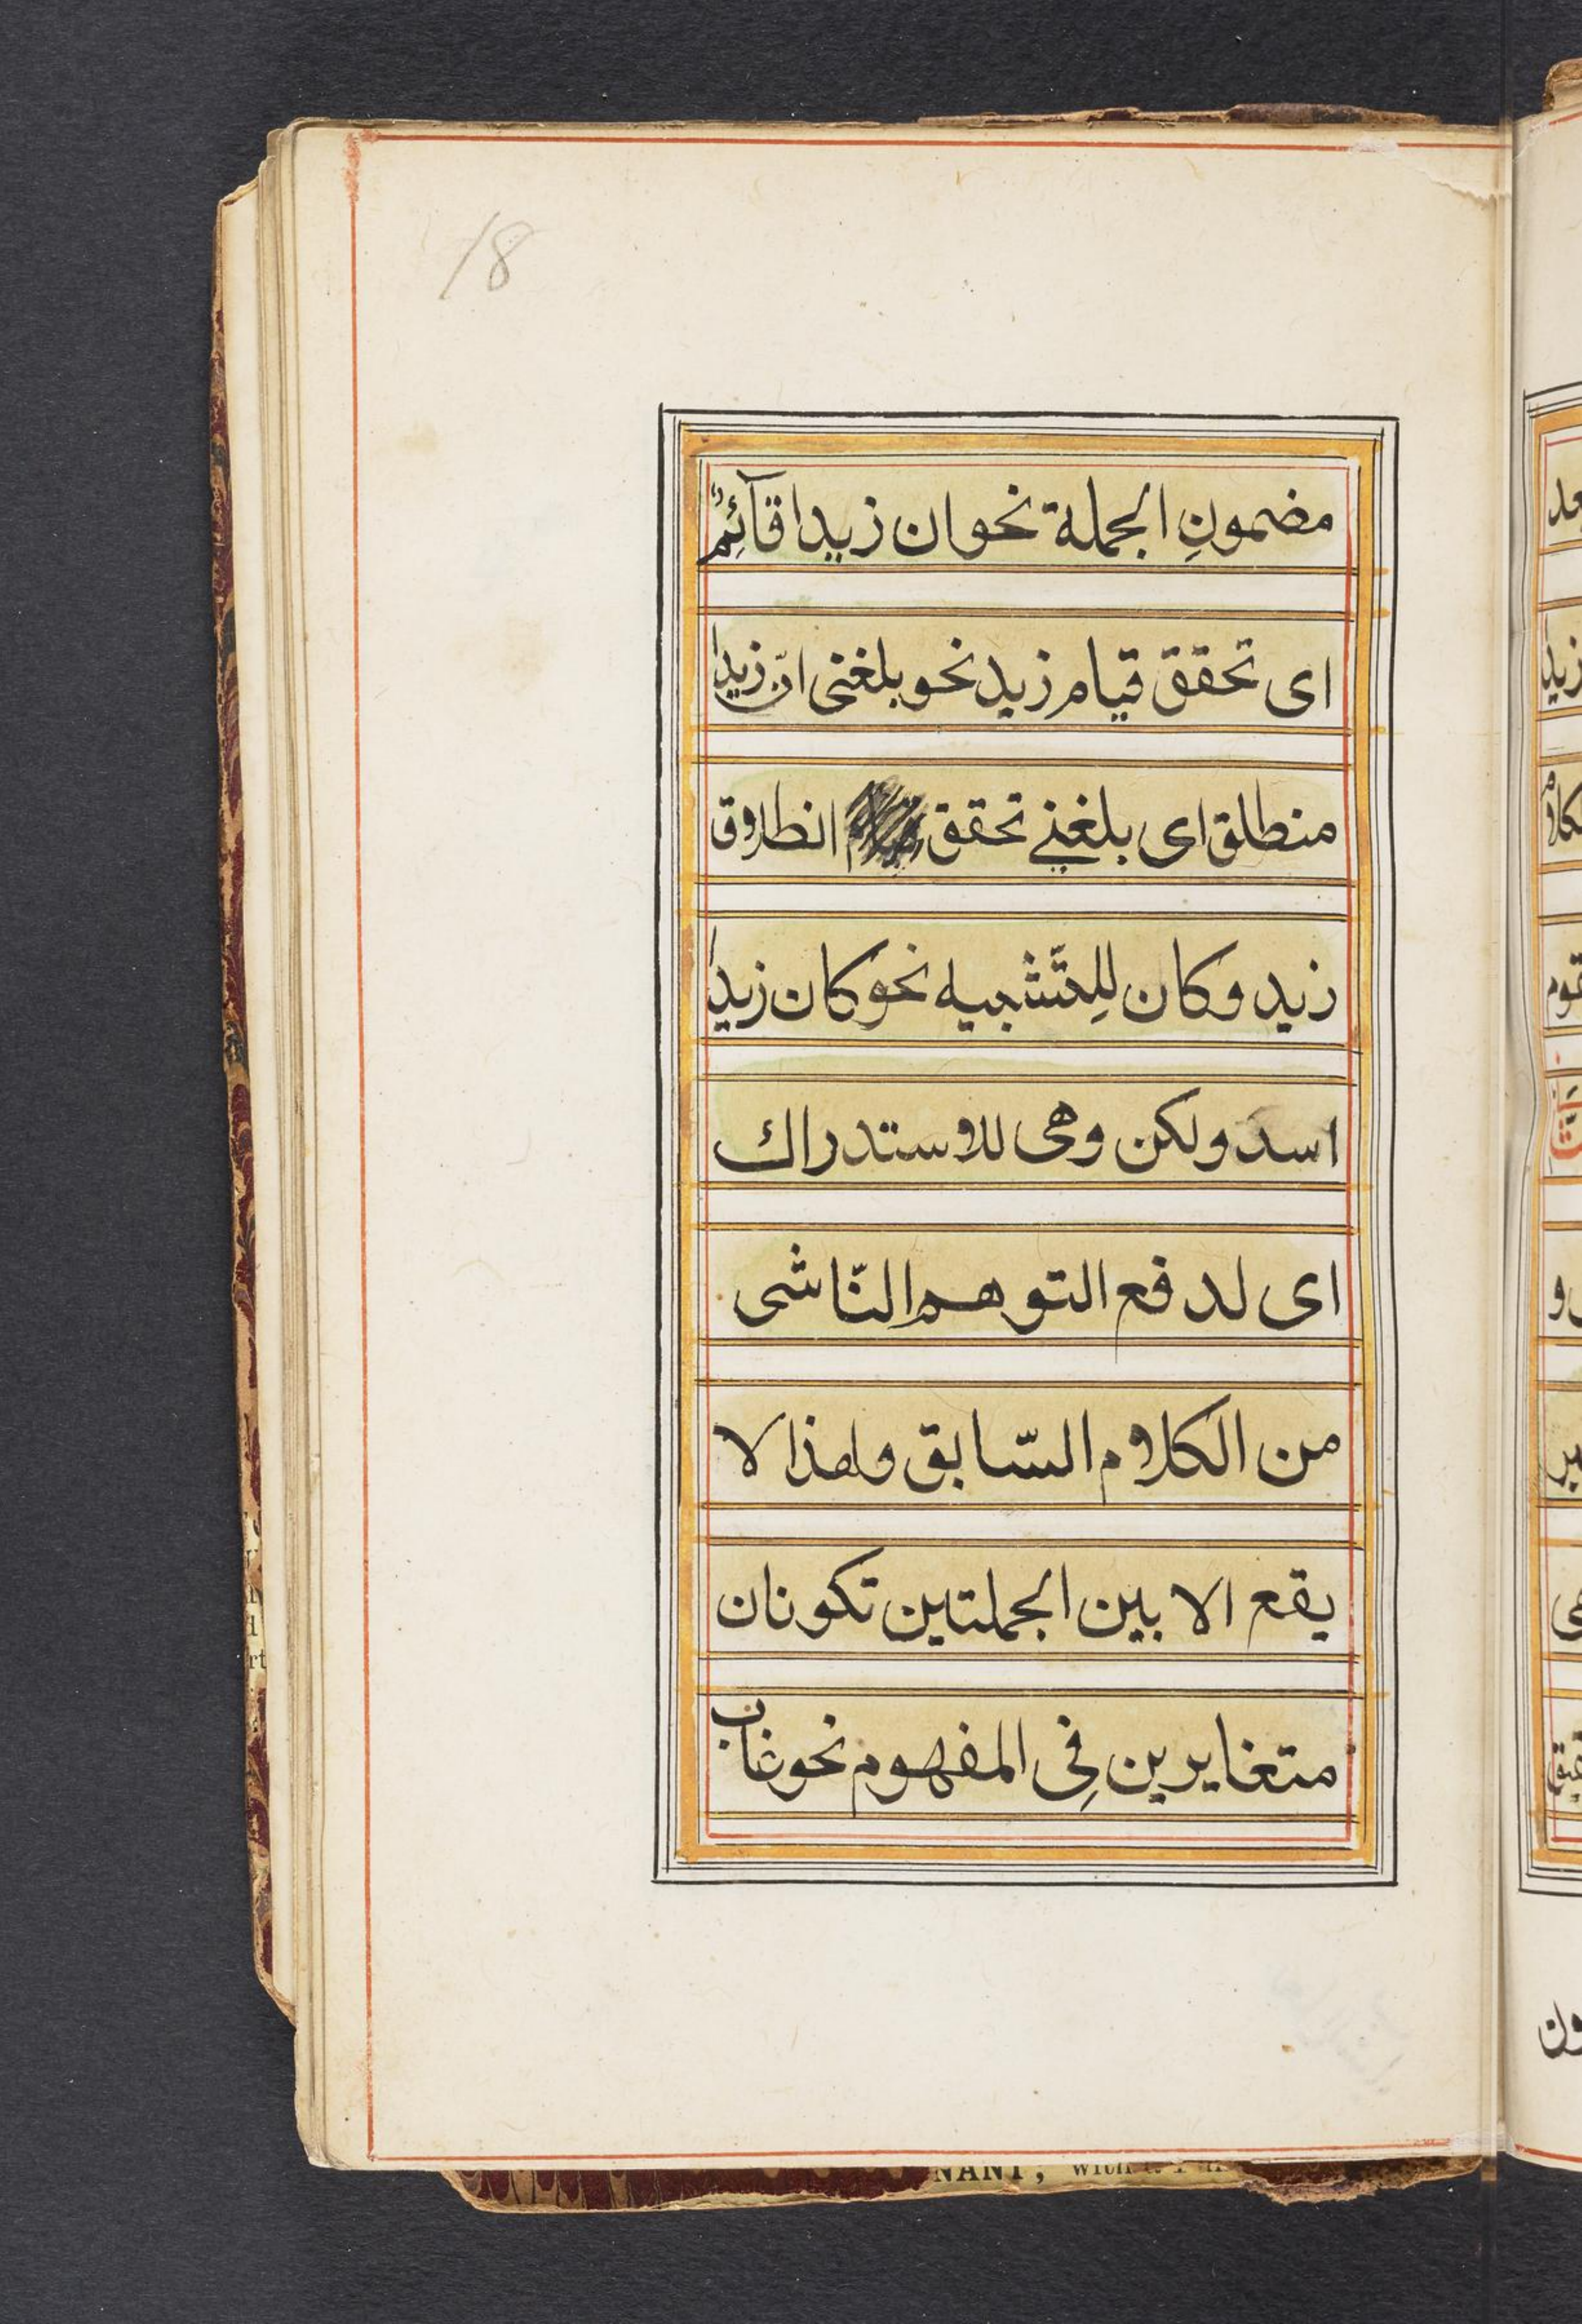 18
مضمونِ الجملة نحو ان زيدا قآئِمٌ
اى تحقق قيام زيد نحو بلغنى انّ زيدا
منطلق اى بلغنے تحقق انطلاق
زيد وكان لِلتّشبيه نحو كان زيدا
اسد ولكن وهى للاستدراك
اى لدفع التوهم النّاشى
من الكلام السّابق ولهذا لا
يقع الا بين الجملتين تكونان
متغايرين فِى المفهوم نحو غاب